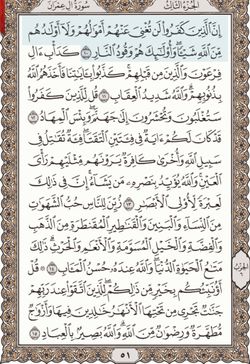 الجزء الثالث سورة آل عمران
إِنَّ ٱلَّذِينَ كَفَرُوا۟ لَن تُغْنِىَ عَنْهُمْ أَمْوَٰلُهُمْ وَلَآ أَوْلَٰدُهُم
مِّنَ ٱللَّهِ شَيْـًٔا وَأُو۟لَٰٓئِكَ هُمْ وَقُودُ ٱلنَّارِ ١٠ كَدَأْبِ ءَالِ
فِرْعَوْنَ وَٱلَّذِينَ مِن قَبْلِهِمْ كَذَّبُوا۟ بِـَٔايَٰتِنَا فَأَخَذَهُمُ ٱللَّهُ
بِذُنُوبِهِمْ وَٱللَّهُ شَدِيدُ ٱلْعِقَابِ ١١ قُل لِّلَّذِينَ كَفَرُوا۟
سَتُغْلَبُونَ وَتُحْشَرُونَ إِلَىٰ جَهَنَّمَ وَبِئْسَ ٱلْمِهَادُ ١٢
قَدْ كَانَ لَكُمْ ءَايَةٌ فِى فِئَتَيْنِ ٱلْتَقَتَا فِئَةٌ تُقَٰتِلُ فِى
سَبِيلِ ٱللَّهِ وَأُخْرَىٰ كَافِرَةٌ يَرَوْنَهُم مِّثْلَيْهِمْ رَأْىَ
ٱلْعَيْنِ وَٱللَّهُ يُؤَيِّدُ بِنَصْرِهِۦ مَن يَشَآءُ إِنَّ فِى ذَٰلِكَ
لَعِبْرَةً لِّأُو۟لِى ٱلْأَبْصَٰرِ ١٣ زُيِّنَ لِلنَّاسِ حُبُّ ٱلشَّهَوَٰتِ
مِنَ ٱلنِّسَآءِ وَٱلْبَنِينَ وَٱلْقَنَٰطِيرِ ٱلْمُقَنطَرَةِ مِنَ ٱلذَّهَبِ
وَٱلْفِضَّةِ وَٱلْخَيْلِ ٱلْمُسَوَّمَةِ وَٱلْأَنْعَٰمِ وَٱلْحَرْثِ ذَٰلِكَ
مَتَٰعُ ٱلْحَيَوٰةِ ٱلدُّنْيَا وَٱللَّهُ عِندَهُۥ حُسْنُ ٱلْمَـَٔابِ ١٤ قُلْ
أَؤُنَبِّئُكُم بِخَيْرٍ مِّن ذَٰلِكُمْ لِلَّذِينَ ٱتَّقَوْا۟ عِندَ رَبِّهِمْ
جَنَّٰتٌ تَجْرِى مِن تَحْتِهَا ٱلْأَنْهَٰرُ خَٰلِدِينَ فِيهَا وَأَزْوَٰجٌ
مُّطَهَّرَةٌ وَرِضْوَٰنٌ مِّنَ ٱللَّهِ وَٱللَّهُ بَصِيرٌۢ بِٱلْعِبَادِ ١٥
٥١